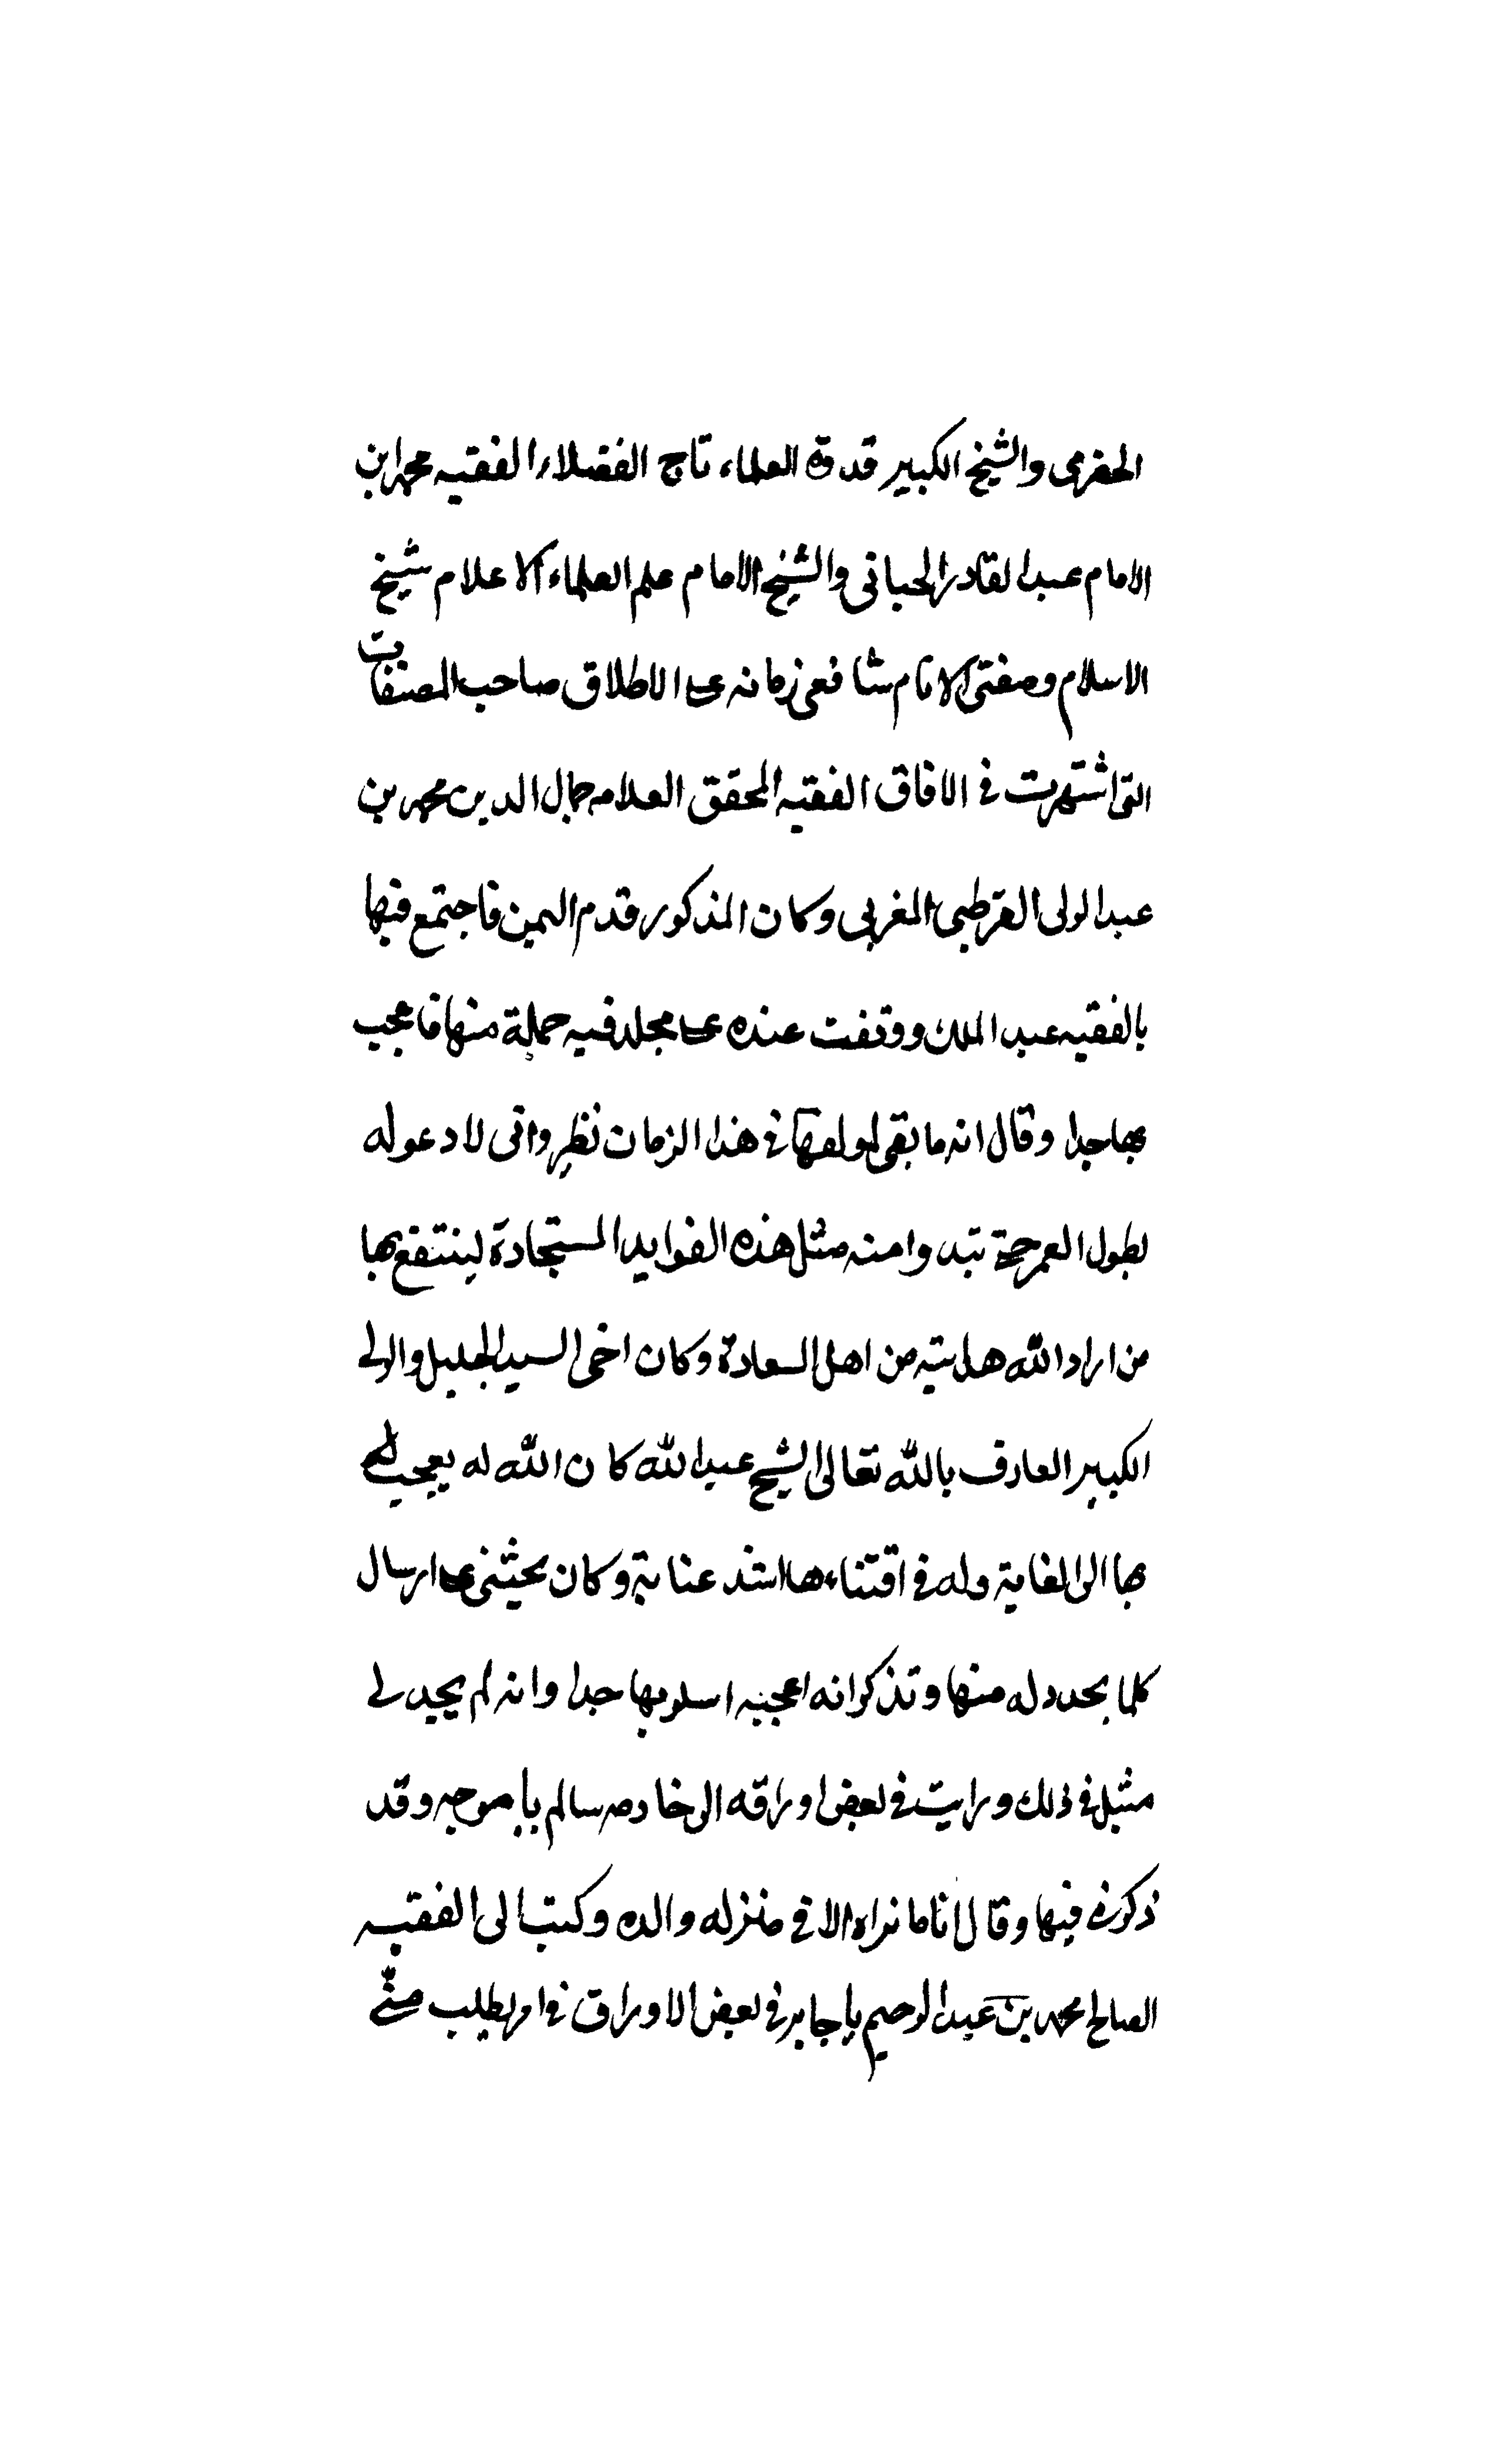 الحضرمي والشيخ الكبير قدوة العلماء تاج الفضلاء الفقيه محمد ابن
الامام عبد القادر الحباني والشيخ الامام علم العلماء الاعلام شيخ
الاسلام ومفتي الانام شافعي زمانه على الاطلاق صاحب المصنفات
التي اشتهرت في الافاق الفقيه المحقق العلامه جمال الدين محمد بن
عبد الولي القرطبي المغربي وكان المذكور قدم اليمن فاجتمع فيها
بالفقيه عبد الملك ووقفت عنده على مجلد فيه جملة منها فاعجب
بها جدا وقال انه ما بقي لمولفها في هذا الزمان نظير واني لادعو له
بطول العمر حتى تبدوا منه مثل هذه الفوايد المستجادة لينتفع بها
من اراد الله هدايته من اهل السعادة وكان اخي السيد الجليل والولي
الكبير العارف بالله تعالى الشيخ عبد الله كان الله له يعجب
بها الى الغاية وله في اقتناءها اشد عناية وكان يحثني على ارسال
كلما يجدد له منها وتذكر انه اعجبه اسلوبها جدا وانه لم يجد لي
مثيل في ذلك ورايت في بعض اوراقه الى خادمه سالم باموجه وقد
ذكرني فيها وقال انا ما نراه الا في منزله والده وكتب الى الفقيه
الصالح محمد بن عبد الرحيم باجابر في بعض الاوراق في امر يطلب مني